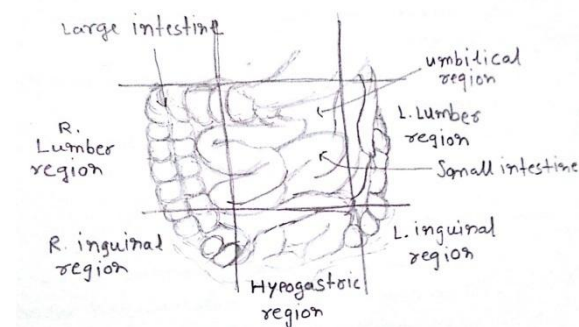 Large intestine
umbilical
region
L. Lumber
region
R.
Lumber
region
Small intestine
R. inguinal
region
L. inguinal
region
Hypogastric
region